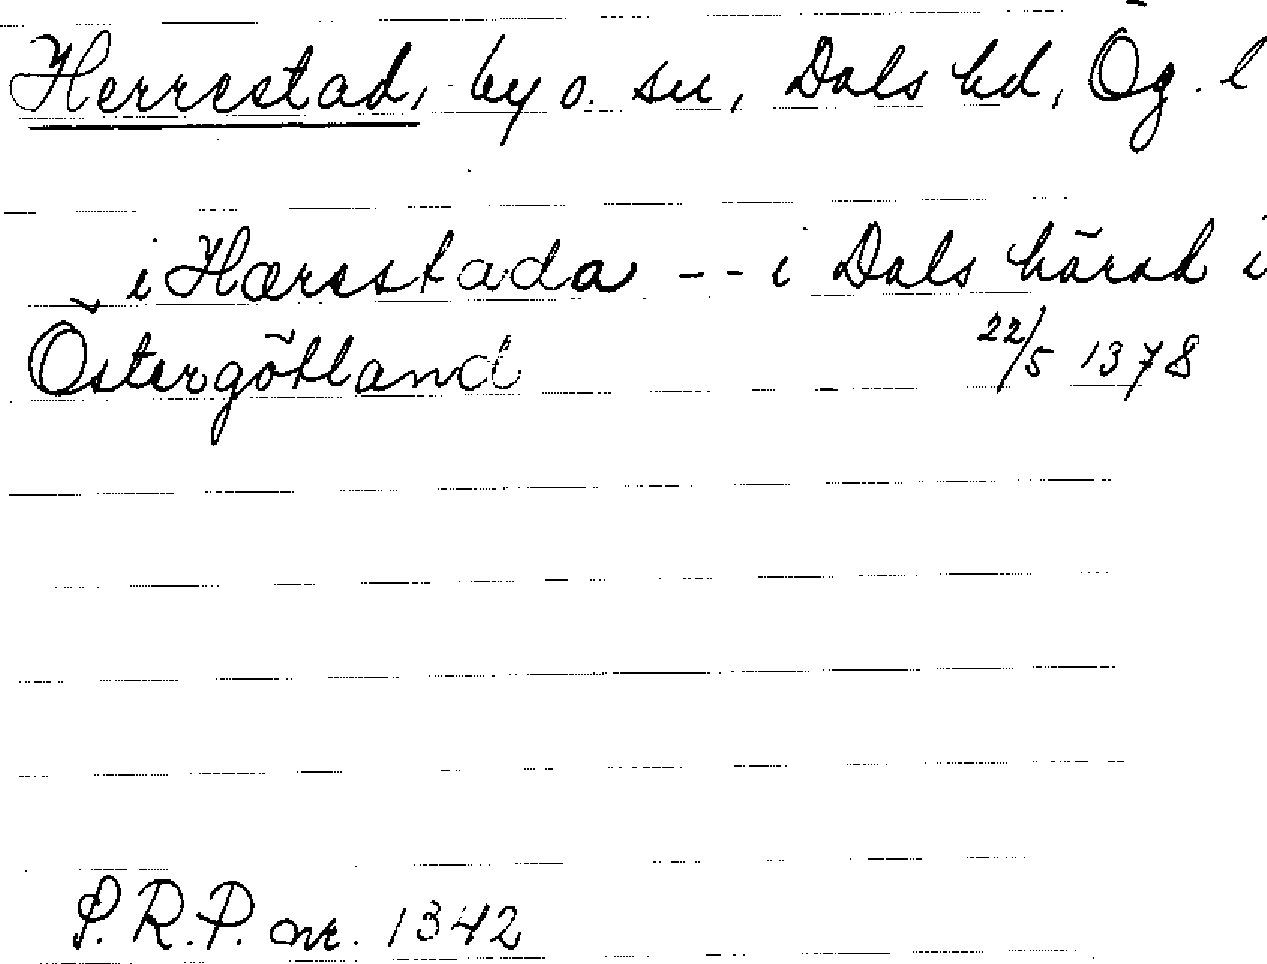 Herrestad, by o. sn, Dals hd, Ög. l
i Hærestada -- i Dals härad i
Östergötland 22/5 1378
S.R.P. nr. 1342